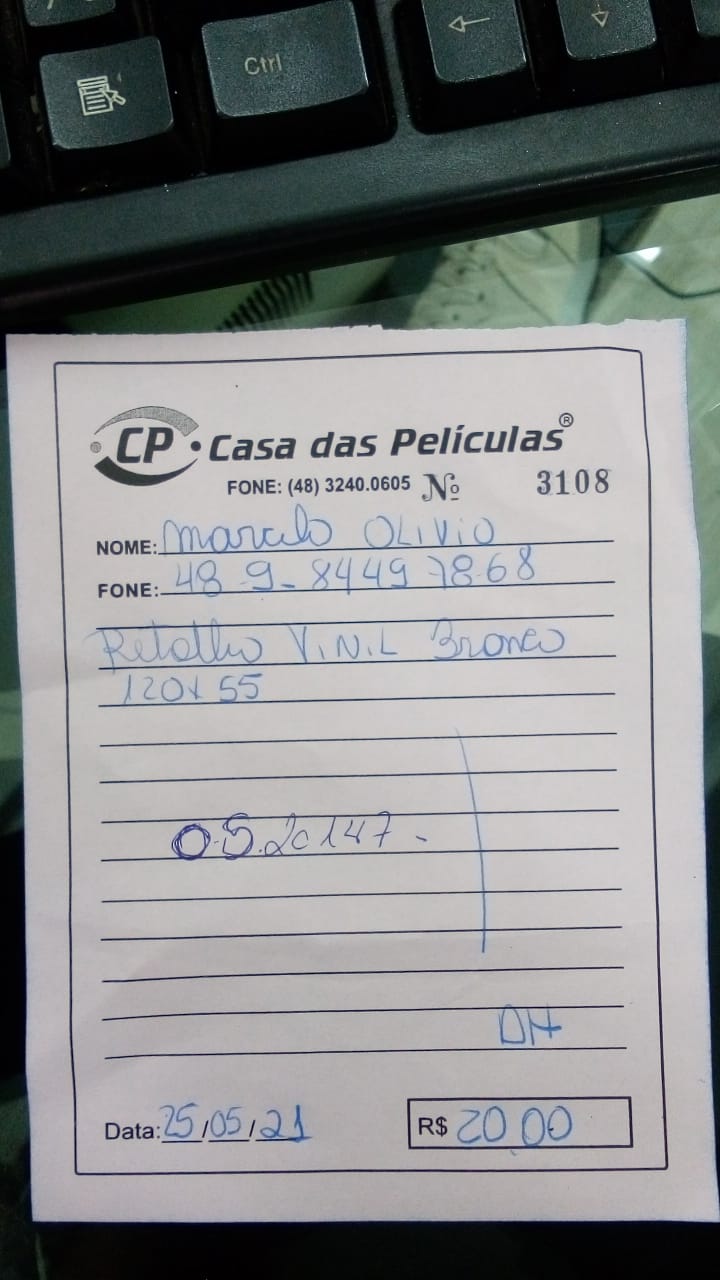 Ctrl
CP • Casa das Películas®
FONE: (48) 3240.0605 Nº 3108
NOME: Marcelo OLIVIO
FONE: 48 9-8449 7868
Retalho ViNiL Branco
120x55
O.S. 20147-
DH
Data: 25/05/21 R$ 20,00